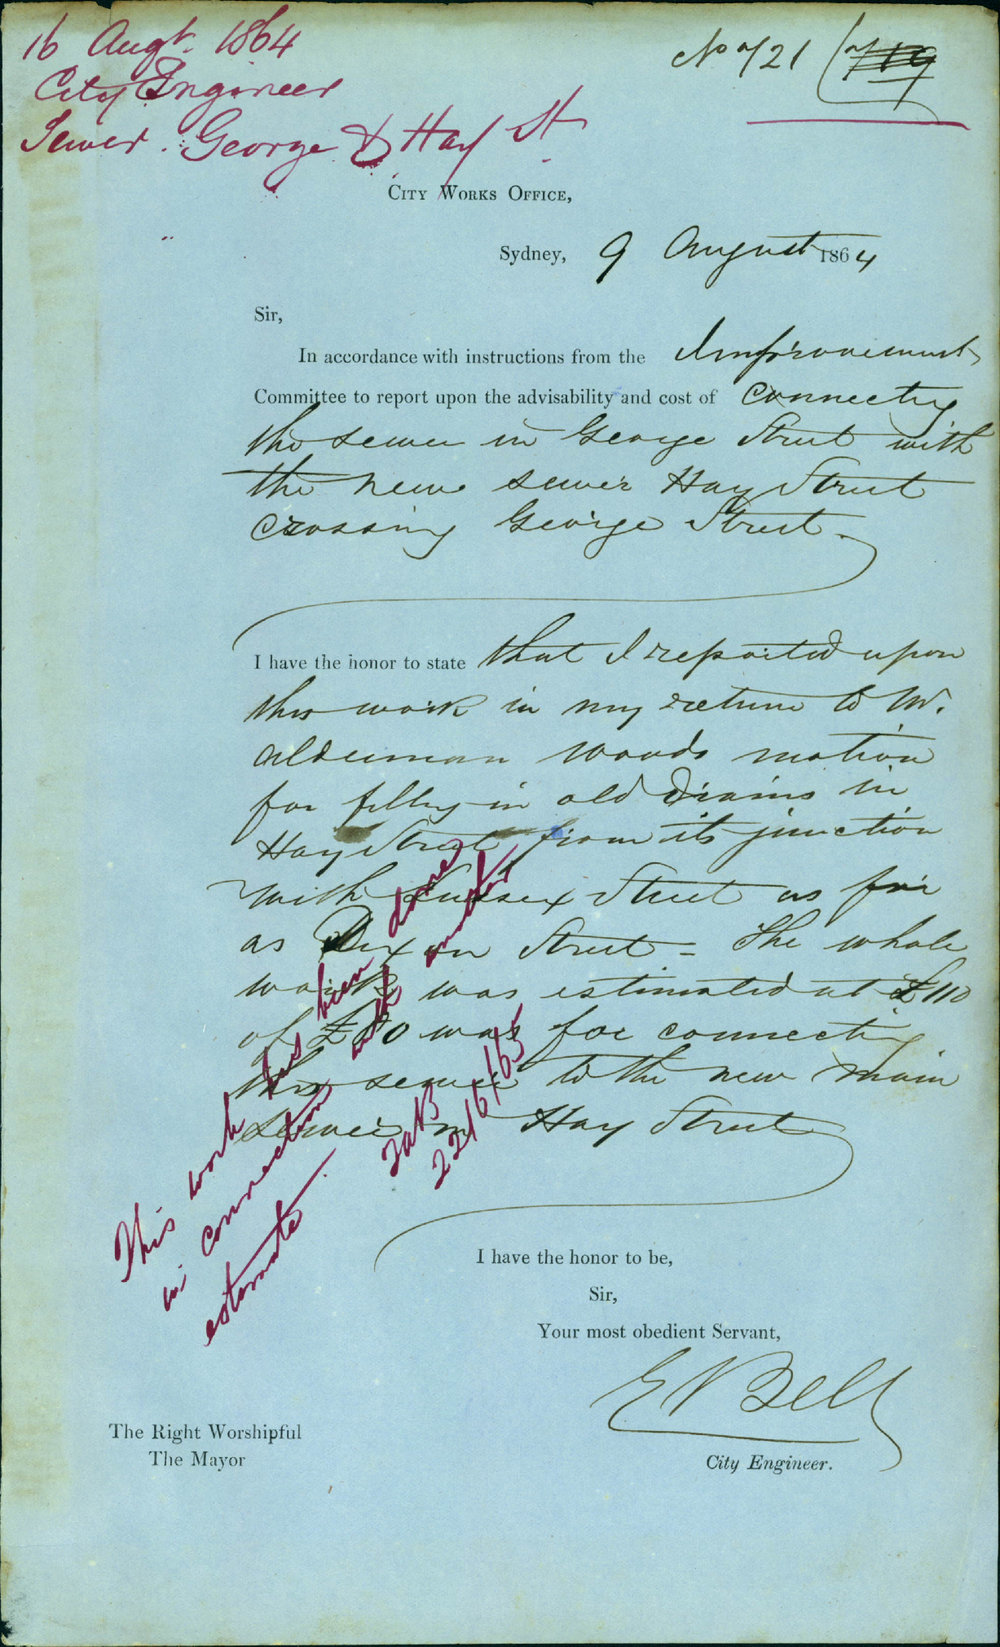 16 Augt. 1864
City Engineer
Sewer. George & Hay St
No 721 (719
City Works Office,
Sydney, 9 August 1864
Sir,
In accordance with instructions from the Improvement
Committee to report upon the advisability and cost of connecting
the sewer in George Street with
the new sewer Hay Street
crossing George Street.
I have the honor to state that I reported upon
this work in my return to Mr.
Alderman Woods motion
for filling in old drains in
Hay Street from its junction
with Sussex Street as far
as Dixon Street - The whole
work was estimated at £110
of was for connecting
this sewer to the new main
sewer in Hay Street
This work has been done
in connection with another
estimate.
22/6/65
I have the honor to be,
Sir,
Your most obedient Servant,
E Bell
City Engineer.
The Right Worshipful
The Mayor